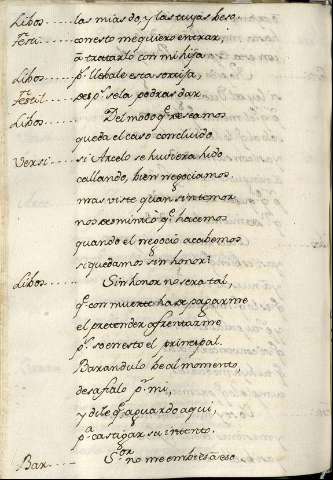 Libos..... las mias do, y las tuyas beso.
Festi..... con esto me quiero entrar
a tratarlo con mi hija
Libos..... pr llebale esta sortija,
Festil..... pr sela podras dar.
Libos..... Del modo qe deseamos
queda el caso concluido
Versi..... si Arcelo se huviera hido
callando, bien negociamos
mas viste quan sin temor
nos qe hacemos
quando el negocio acabemos
si quedamos sin honor?
Libos..... Sin honor no sera tal,
qe con muerte ha de pagarme
el pretender afrentarme
pr so en esto el principal.
Barandulo be al momento,
desafialo pr mi,
y dile qe aguardo aqui,
pa castigar su intento.
Bar..... Sor no me embies a eso